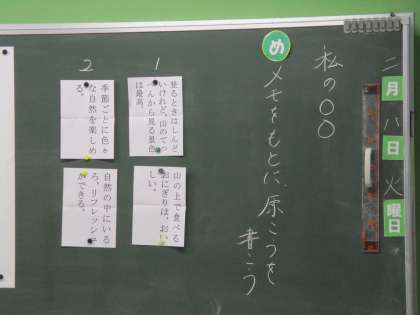 二月八日火曜日
私の〇〇
め
メモをもとに、原こうを
書こう
1
登るときはしんど
いけれど、山のてっ
ぺんから見る景色
は最高。
山の上で食べる
おにぎりは、おい
しい。
2
季節ごとに色々
な自然を楽しめ
る。
自然の中にいる
と、リフレッシュ
ができる。